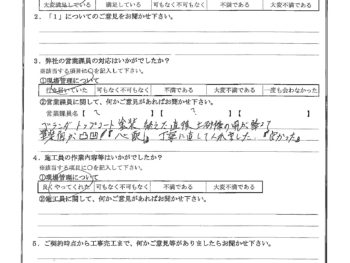 大変満足している 満足している 可もなく不可もなく 不満である 大変不満である
2．「1」についてのご意見をお聞かせ下さい。
3．弊社の営業課員の対応はいかがでしたか？
※該当する項目に○を記入して下さい。
①現場管理について
行き届いていた 可もなく不可もなく 不満である 大変不満である 一度も会わなかった
②営業課員に関して、何かご意見があればお聞かせ下さい。
営業課員名【 】【 】【 】
ベランダ トップコート 塗装 終えた直後、土砂降の雨が降って
塗装面が凸凹 『心配』 丁寧に直してくれました 『良かった』
4．施工員の作業内容等はいかがでしたか？
※該当する項目に○を記入して下さい。
①現場管理について
良くやってくれた 可もなく不可もなく 不満である 大変不満である
②施工員に関して、何かご意見があればお聞かせ下さい。
5．ご契約時点から工事完工まで、何かご意見等がありましたらお聞かせ下さい。